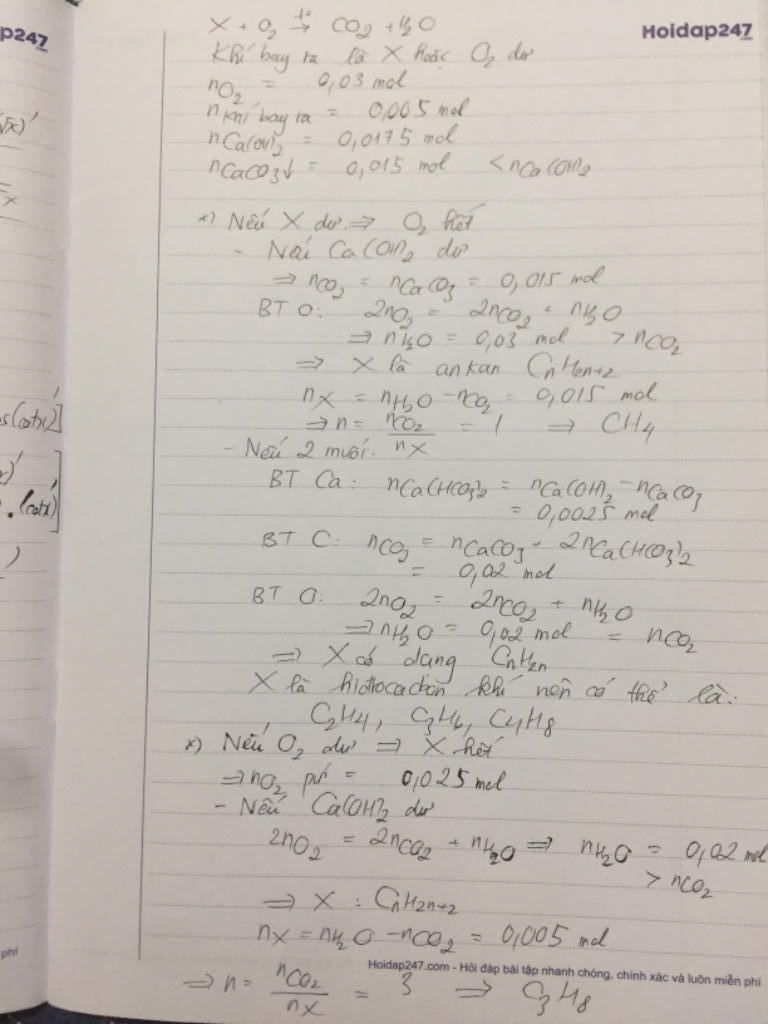 ap247
Hoidap247
X + O₂ →(t°) CO₂ + H₂O
Khí bay ra là X hoặc O₂ dư
nO₂ = 0,03 mol
nkhí bay ra = 0,005 mol
nCa(OH)₂ = 0,0175 mol
nCaCO₃↓ = 0,015 mol < nCa(OH)₂
*) Nếu X dư ⇒ O₂ hết
- Nếu Ca(OH)₂ dư
⇒ nCO₂ = nCaCO₃ = 0,015 mol
BT O: 2nO₂ = 2nCO₂ + nH₂O
⇒ nH₂O = 0,03 mol > nCO₂
⇒ X là ankan CnH2n+2
nX = nH₂O - nCO₂ = 0,015 mol
⇒ n = nCO₂/nX = 1 ⇒ CH₄
- Nếu 2 muối.
BT Ca: nCa(HCO₃)₂ = nCa(OH)₂ - nCaCO₃
= 0,0025 mol
BT C: nCO₂ = nCaCO₃ + 2nCa(HCO₃)₂
= 0,02 mol
BT O: 2nO₂ = 2nCO₂ + nH₂O
⇒ nH₂O = 0,02 mol = nCO₂
⇒ X có dạng CnH2n
X là hiđrocacbon khí nên có thể là:
C₂H₄, C₃H₆, C₄H₈
*) Nếu O₂ dư ⇒ X hết
⇒ nO₂ pứ = 0,025 mol
- Nếu Ca(OH)₂ dư
2nO₂ = 2nCO₂ + nH₂O ⇒ nH₂O = 0,02 mol
> nCO₂
⇒ X : CnH2n+2
nX = nH₂O - nCO₂ = 0,005 mol
Hoidap247.com - Hỏi đáp bài tập nhanh chóng, chính xác và luôn miễn phí
⇒ n = nCO₂/nX = 3 ⇒ C₃H₈
√x)'
s(cotx²)
. (cotx)'
phí